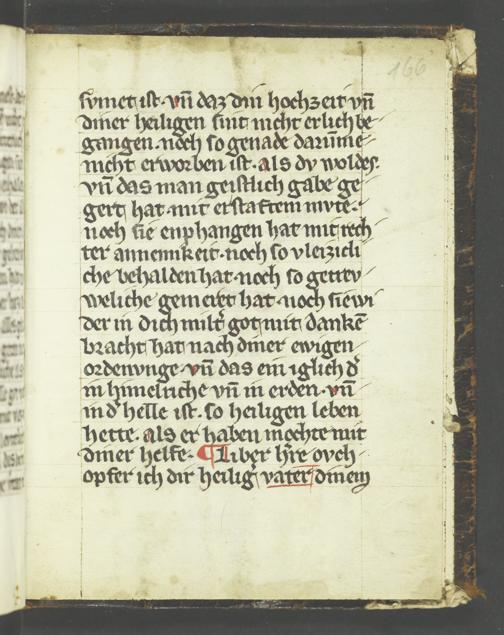 166
sumet ist · vn̄ daz din hochzeit vn̄
diner heiligen sint nicht erlich be
gangen · noch so genade darumme
nicht erworben ist · als dv woldes ·
vn̄ das man geistlich gabe ge
gert hat mit erstaftem mvte ·
noch sie enphangen hat mit rech
ter annemikeit · noch so vleizicli
che behalden hat · noch so getrev
weliche gemeret hat · noch sie wi
der in dich milt᷑ got mit dankē
bracht hat nach diner ewigen
ordenvnge · vn̄ das ein iglich d᷑
in himelriche vn̄ in erden · vn̄
in d᷑ helle ist · so heiligen leben
hette · als er haben mochte mit
diner helfe · ¶ Liber h᷑re ovch
opfer ich dir heilig᷑ vater dinem